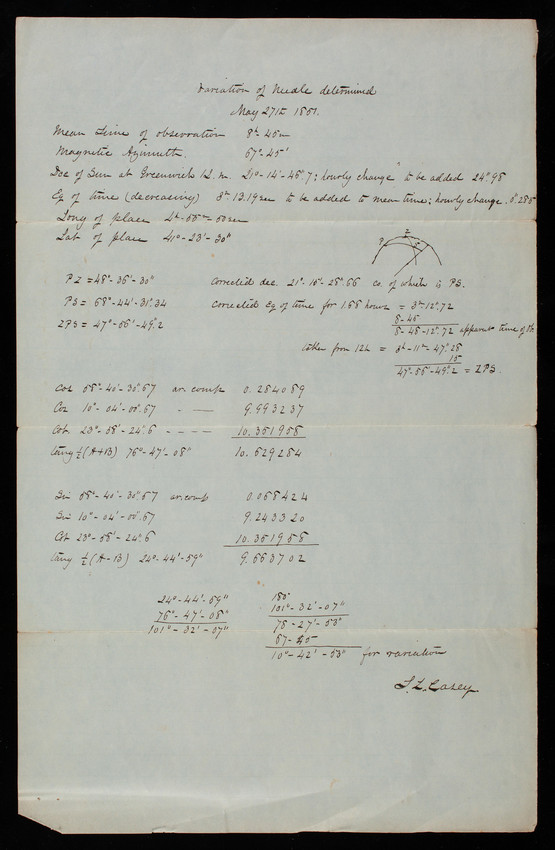 Variation of Needle determined
May 27th 1851.
Mean time of observation 8h-45m
Magnetic Azimuth. 67°-45'
Dec of Sun at Greenwich 12 m. 21°-14'-45".7; hourly change to be added 24".98
Eq of time (decreasing) 3m 13.19 sec to be added to mean time; hourly change. 0s.285
Long of place
Lat of place 41°-23'-30"
P Z S
PZ = 48°-36'-30" Corrected dec. co. of which is PS.
PS = 68°-44'-31".34 Corrected Eq of time for hours = 3m 12s.72
8-45
8-48-12s.72 apparent time of
ZPS = 47°-56'-49".2 taken from 12h = 3h-11m-47s.28
15
47°-56'-49".2 = ZPS.
Cos 58°-40'-30".67 ar. comp 0.284089
Cos 10°-04'-00".67 - — 9.993237
Cot 23°-58'-24".6 - - - - 10.351958
tang ½(A+B) 76°-47'-08" 10.629284
Sin 58°-40'-30".67 ar. comp 0.068424
Sin 10°-04'-00".67 9.243320
Cot 23°-58'-24".6 10.351958
tang ½(A-B) 24°-44'-59" 9.663702
24°-44'-59" 180°
76°-47'-08" 101°-32'-07"
101°-32'-07" 78-27'-53"
67-45
10°-42'-53" for variation
T. L. Casey